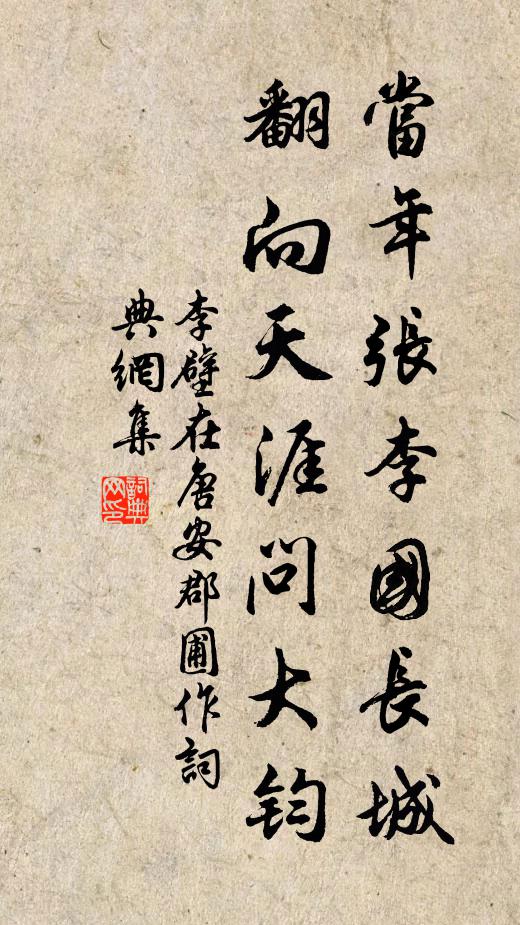 當年張李國長城
翻向天涯問大鈞
李壁在唐安郡圃作詞
典網集
詞典网印